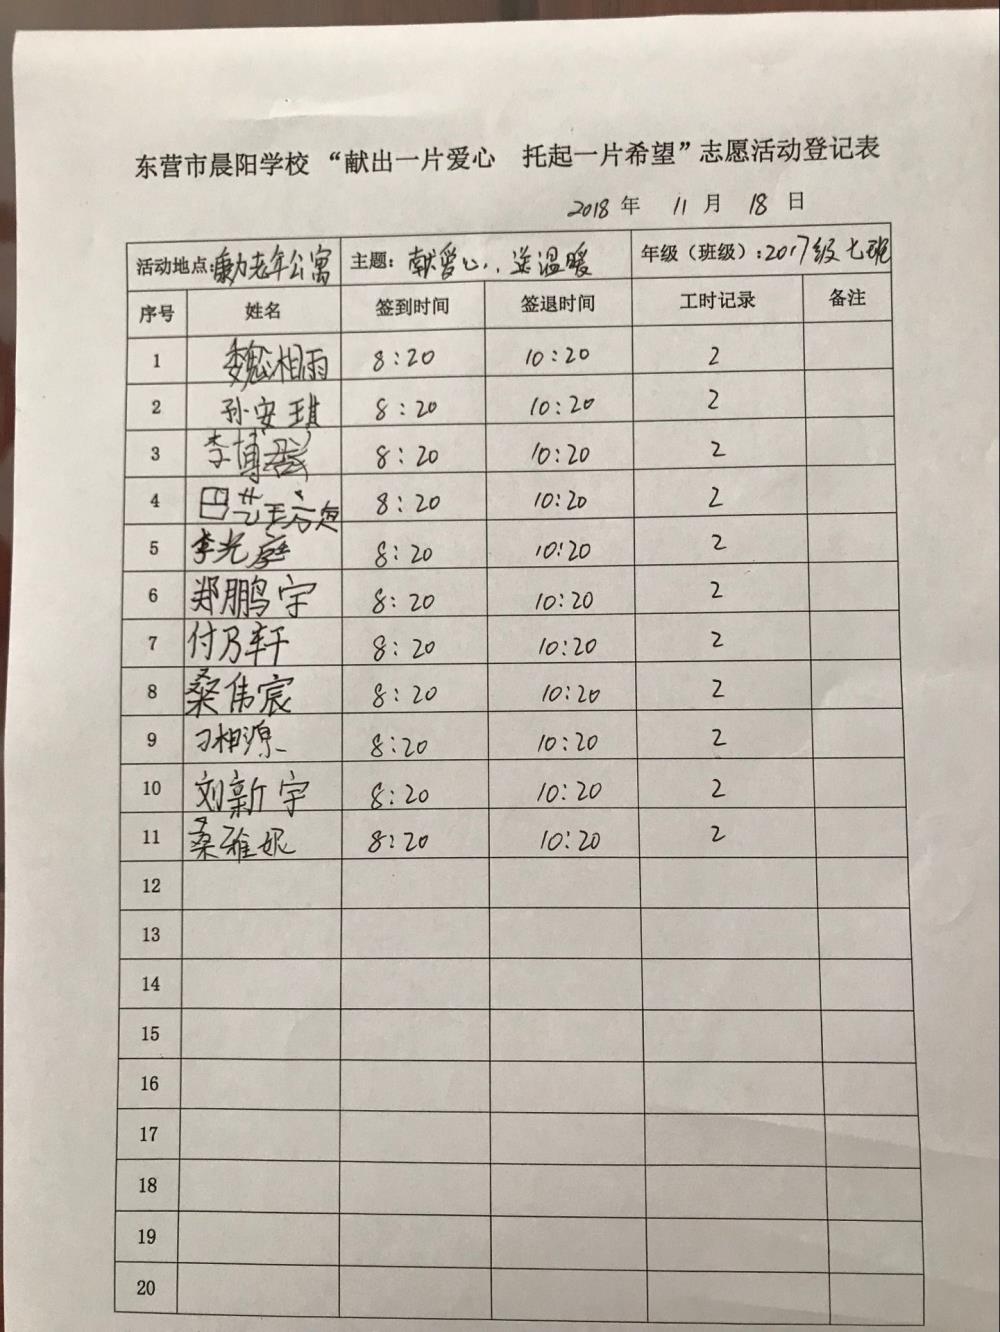 东营市晨阳学校 “献出一片爱心 托起一片希望”志愿活动登记表
2018 年 11 月 18 日
活动地点: 老年公寓 主题: 献爱心, 送温暖 年级（班级）: 2017级七班
序号 姓名 签到时间 签退时间 工时记录 备注
1 魏湘雨 8:20 10:20 2
2 孙安琪 8:20 10:20 2
3 李博 8:20 10:20 2
4 巴艺 8:20 10:20 2
5 李光庭 8:20 10:20 2
6 郑鹏宇 8:20 10:20 2
7 付乃轩 8:20 10:20 2
8 桑伟宸 8:20 10:20 2
9 刁相源 8:20 10:20 2
10 刘新宇 8:20 10:20 2
11 桑雅妮 8:20 10:20 2
12
13
14
15
16
17
18
19
20